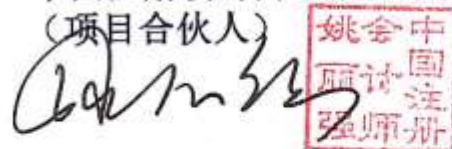 （项目合伙人）
中国注册
会计师
姚丽强